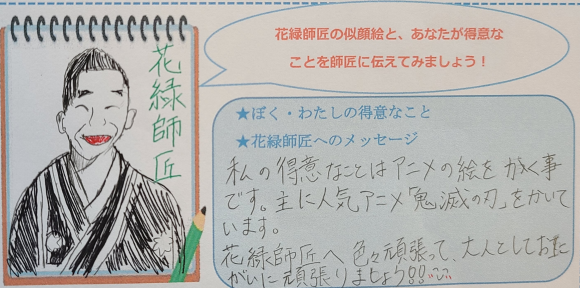 花緑師匠
花緑師匠の似顔絵と、あなたが得意な
ことを師匠に伝えてみましょう！
★ぼく・わたしの得意なこと
★花緑師匠へのメッセージ
私の得意なことはアニメの絵をかく事
です。主に人気アニメ「鬼滅の刃」をかいて
います。
花緑師匠へ 色々頑張って、大人としておた
がいに頑張りましょう!!